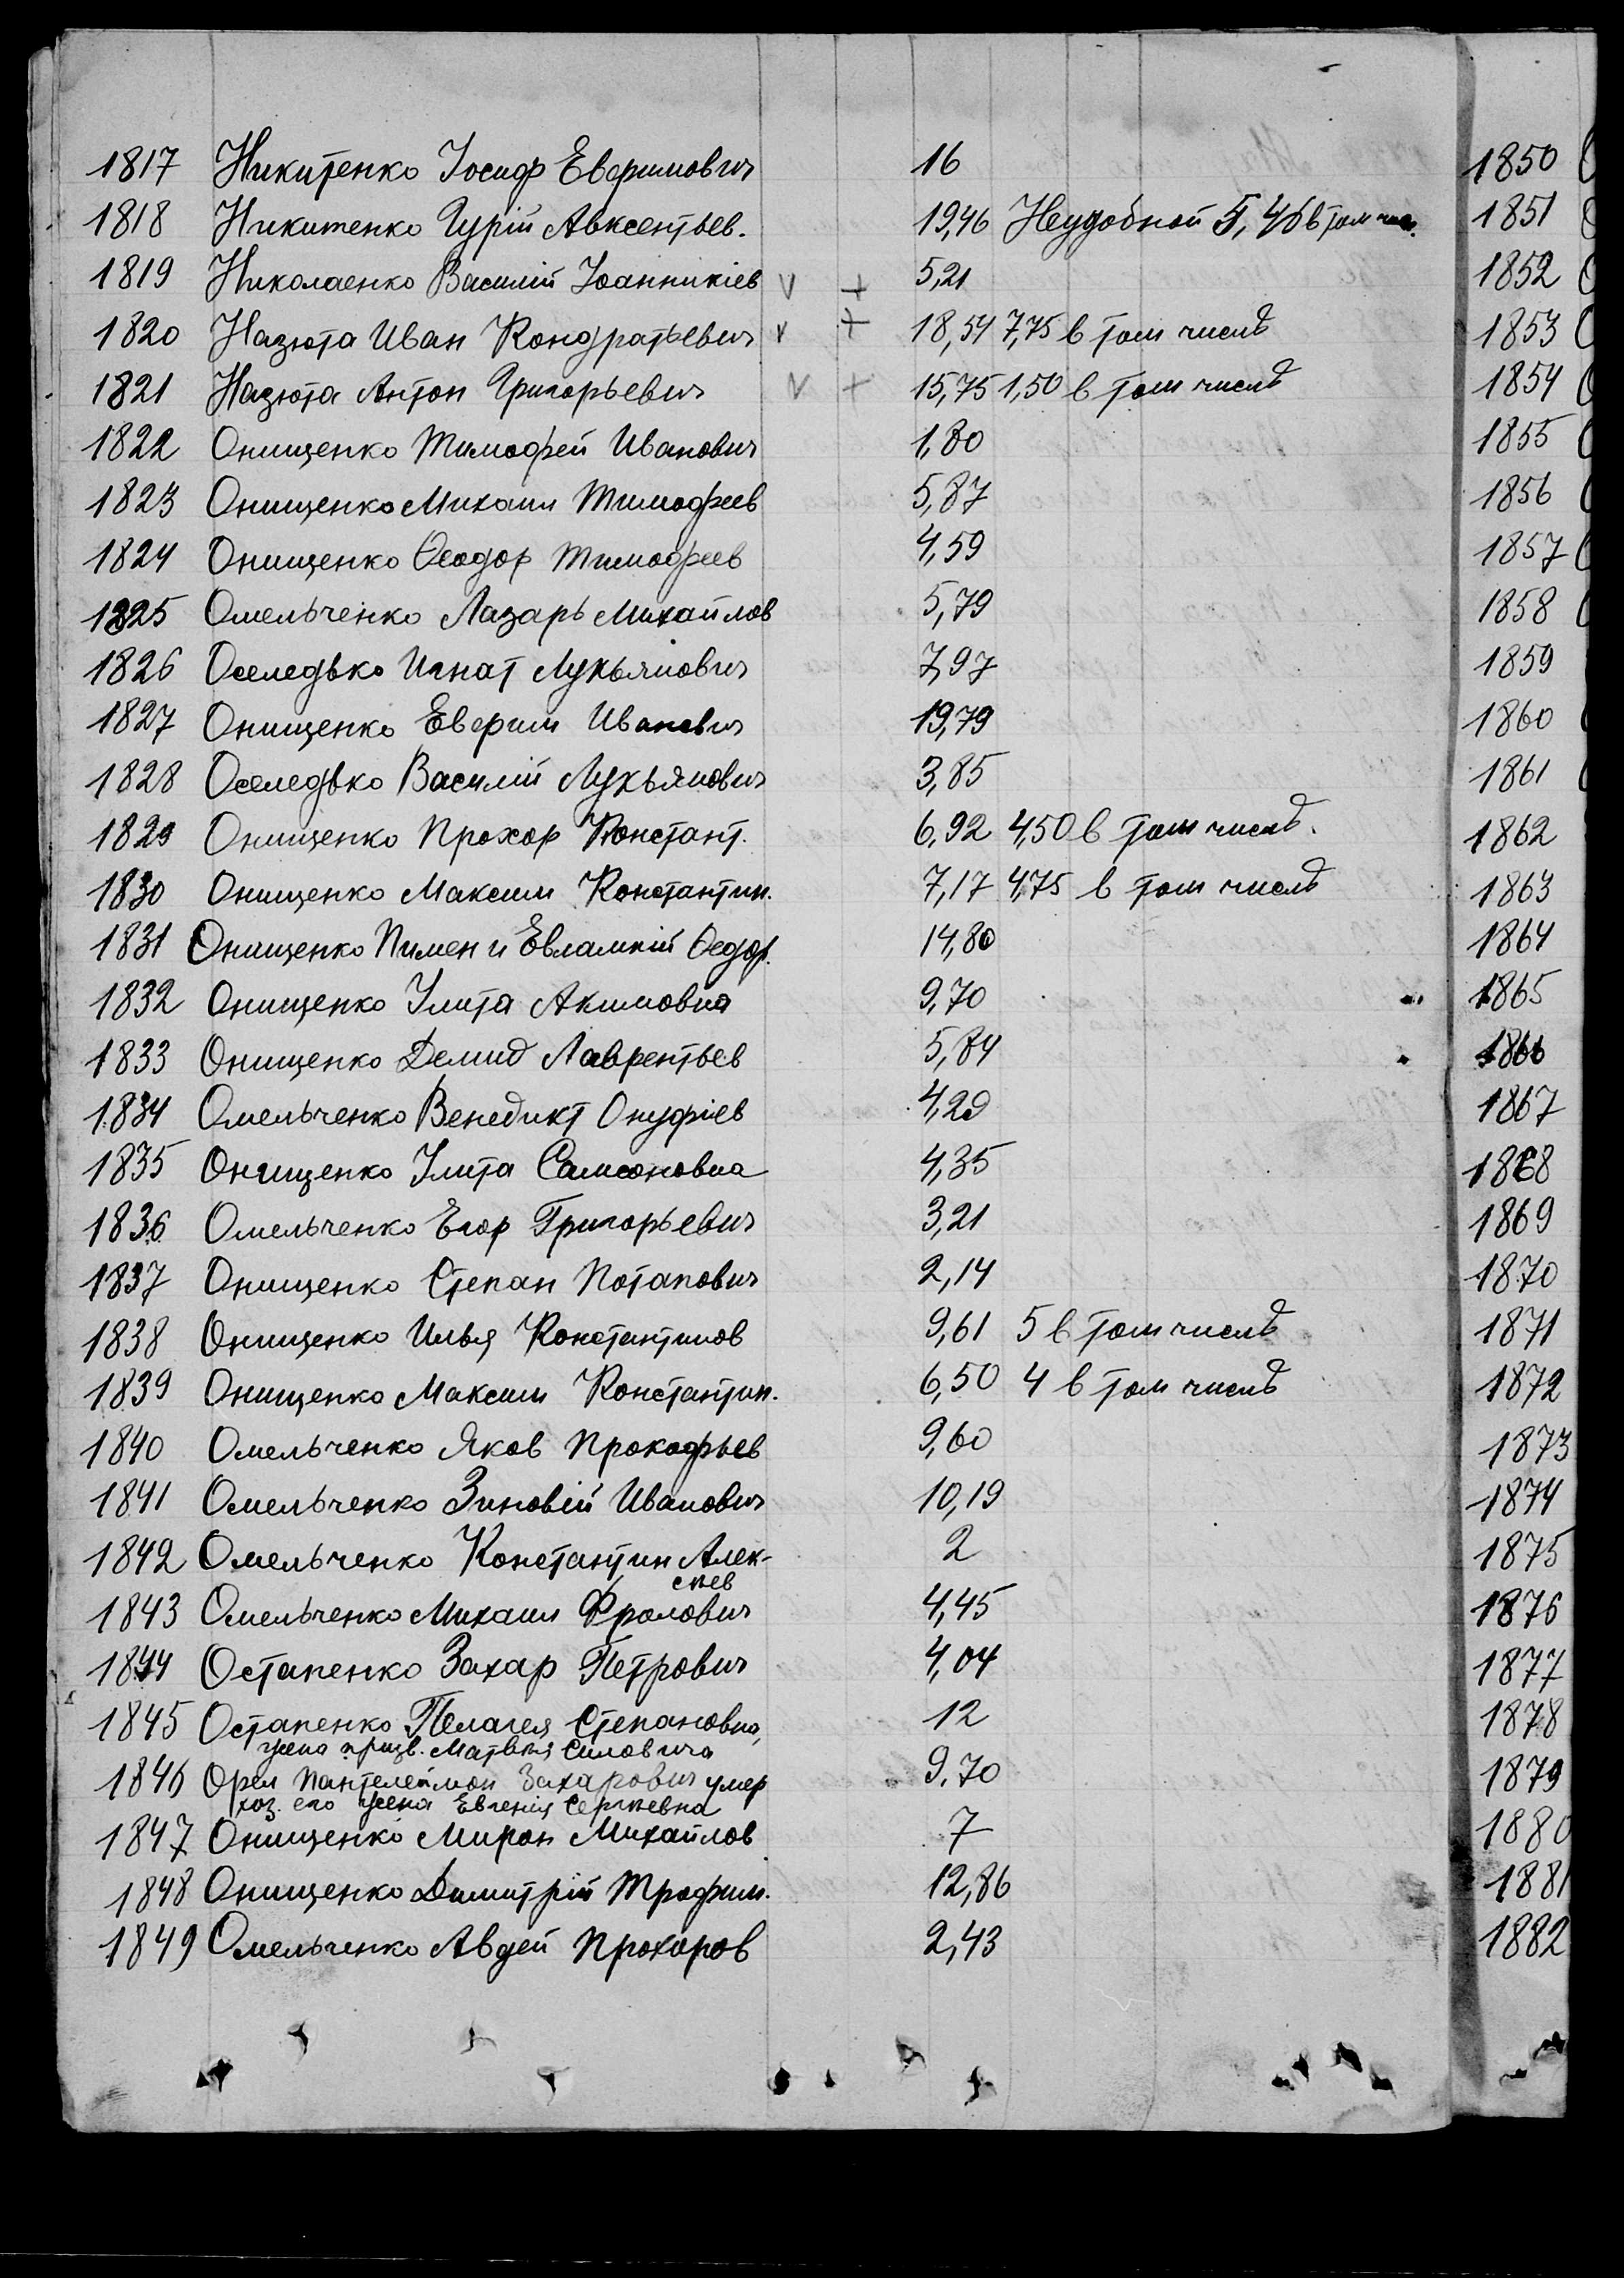 1817 Никитенко Іосиф Евфимович 16
1818 Никитенко Гурій Авксентьев. 19,46 Неудобной 5,46 в том чис.
1819 Николаенко Василій Іоанникіев V + 5,21
1820 Назюта Иван Кондратьевич V + 18,54 7,75 в том числѣ
1821 Назюта Антон Григорьевич V + 15,75 1,50 в том числѣ
1822 Онищенко Тимофей Иванович 1,80
1823 Онищенко Михаил Тимофеев 5,87
1824 Онищенко Ѳеодор Тимофеев 4,59
1825 Омельченко Лазарь Михайлов 5,79
1826 Оселедько Игнат Лукьянович 7,97
1827 Онищенко Евфрим Иванович 19,79
1828 Оселедько Василій Лукьянович 3,85
1829 Онищенко Прохор Констант. 6,92 4,50 в том числѣ.
1830 Онищенко Максим Константин. 7,17 4,75 в том числѣ
1831 Онищенко Пимен и Евлампій Ѳедор. 14,80
1832 Онищенко Улита Акимовна 9,70
1833 Онищенко Демид Лаврентьев 5,84
1834 Омельченко Венедикт Онуфріев 4,29
1835 Онищенко Улита Самсоновна 4,35
1836 Омельченко Егор Григорьевич 3,21
1837 Онищенко Степан Потапович 2,14
1838 Онищенко Илья Константинов 9,61 5 в том числѣ
1839 Онищенко Максим Константин. 6,50 4 в том числѣ
1840 Омельченко Яков Прокофьев 9,60
1841 Омельченко Зиновій Иванович 10,19
1842 Омельченко Константин Алек- 2
сѣев
1843 Омельченко Михаил Фролович 4,45
1844 Остапенко Захар Петрович 4,04
1845 Остапенко Пелагея Степановна, 12
жена призв. Матвѣя Силовича
1846 Орел Пантелеймон Захарович умер 9,70
хоз. его жена Евгенія Сергѣевна
1847 Онищенко Мирон Михайлов 7
1848 Онищенко Димитрій Трофим. 12,86
1849 Омельченко Авдей Прохоров 2,43
1850
1851
1852
1853
1854
1855
1856
1857
1858
1859
1860
1861
1862
1863
1864
1865
1866
1867
1868
1869
1870
1871
1872
1873
1874
1875
1876
1877
1878
1879
1880
1881
1882